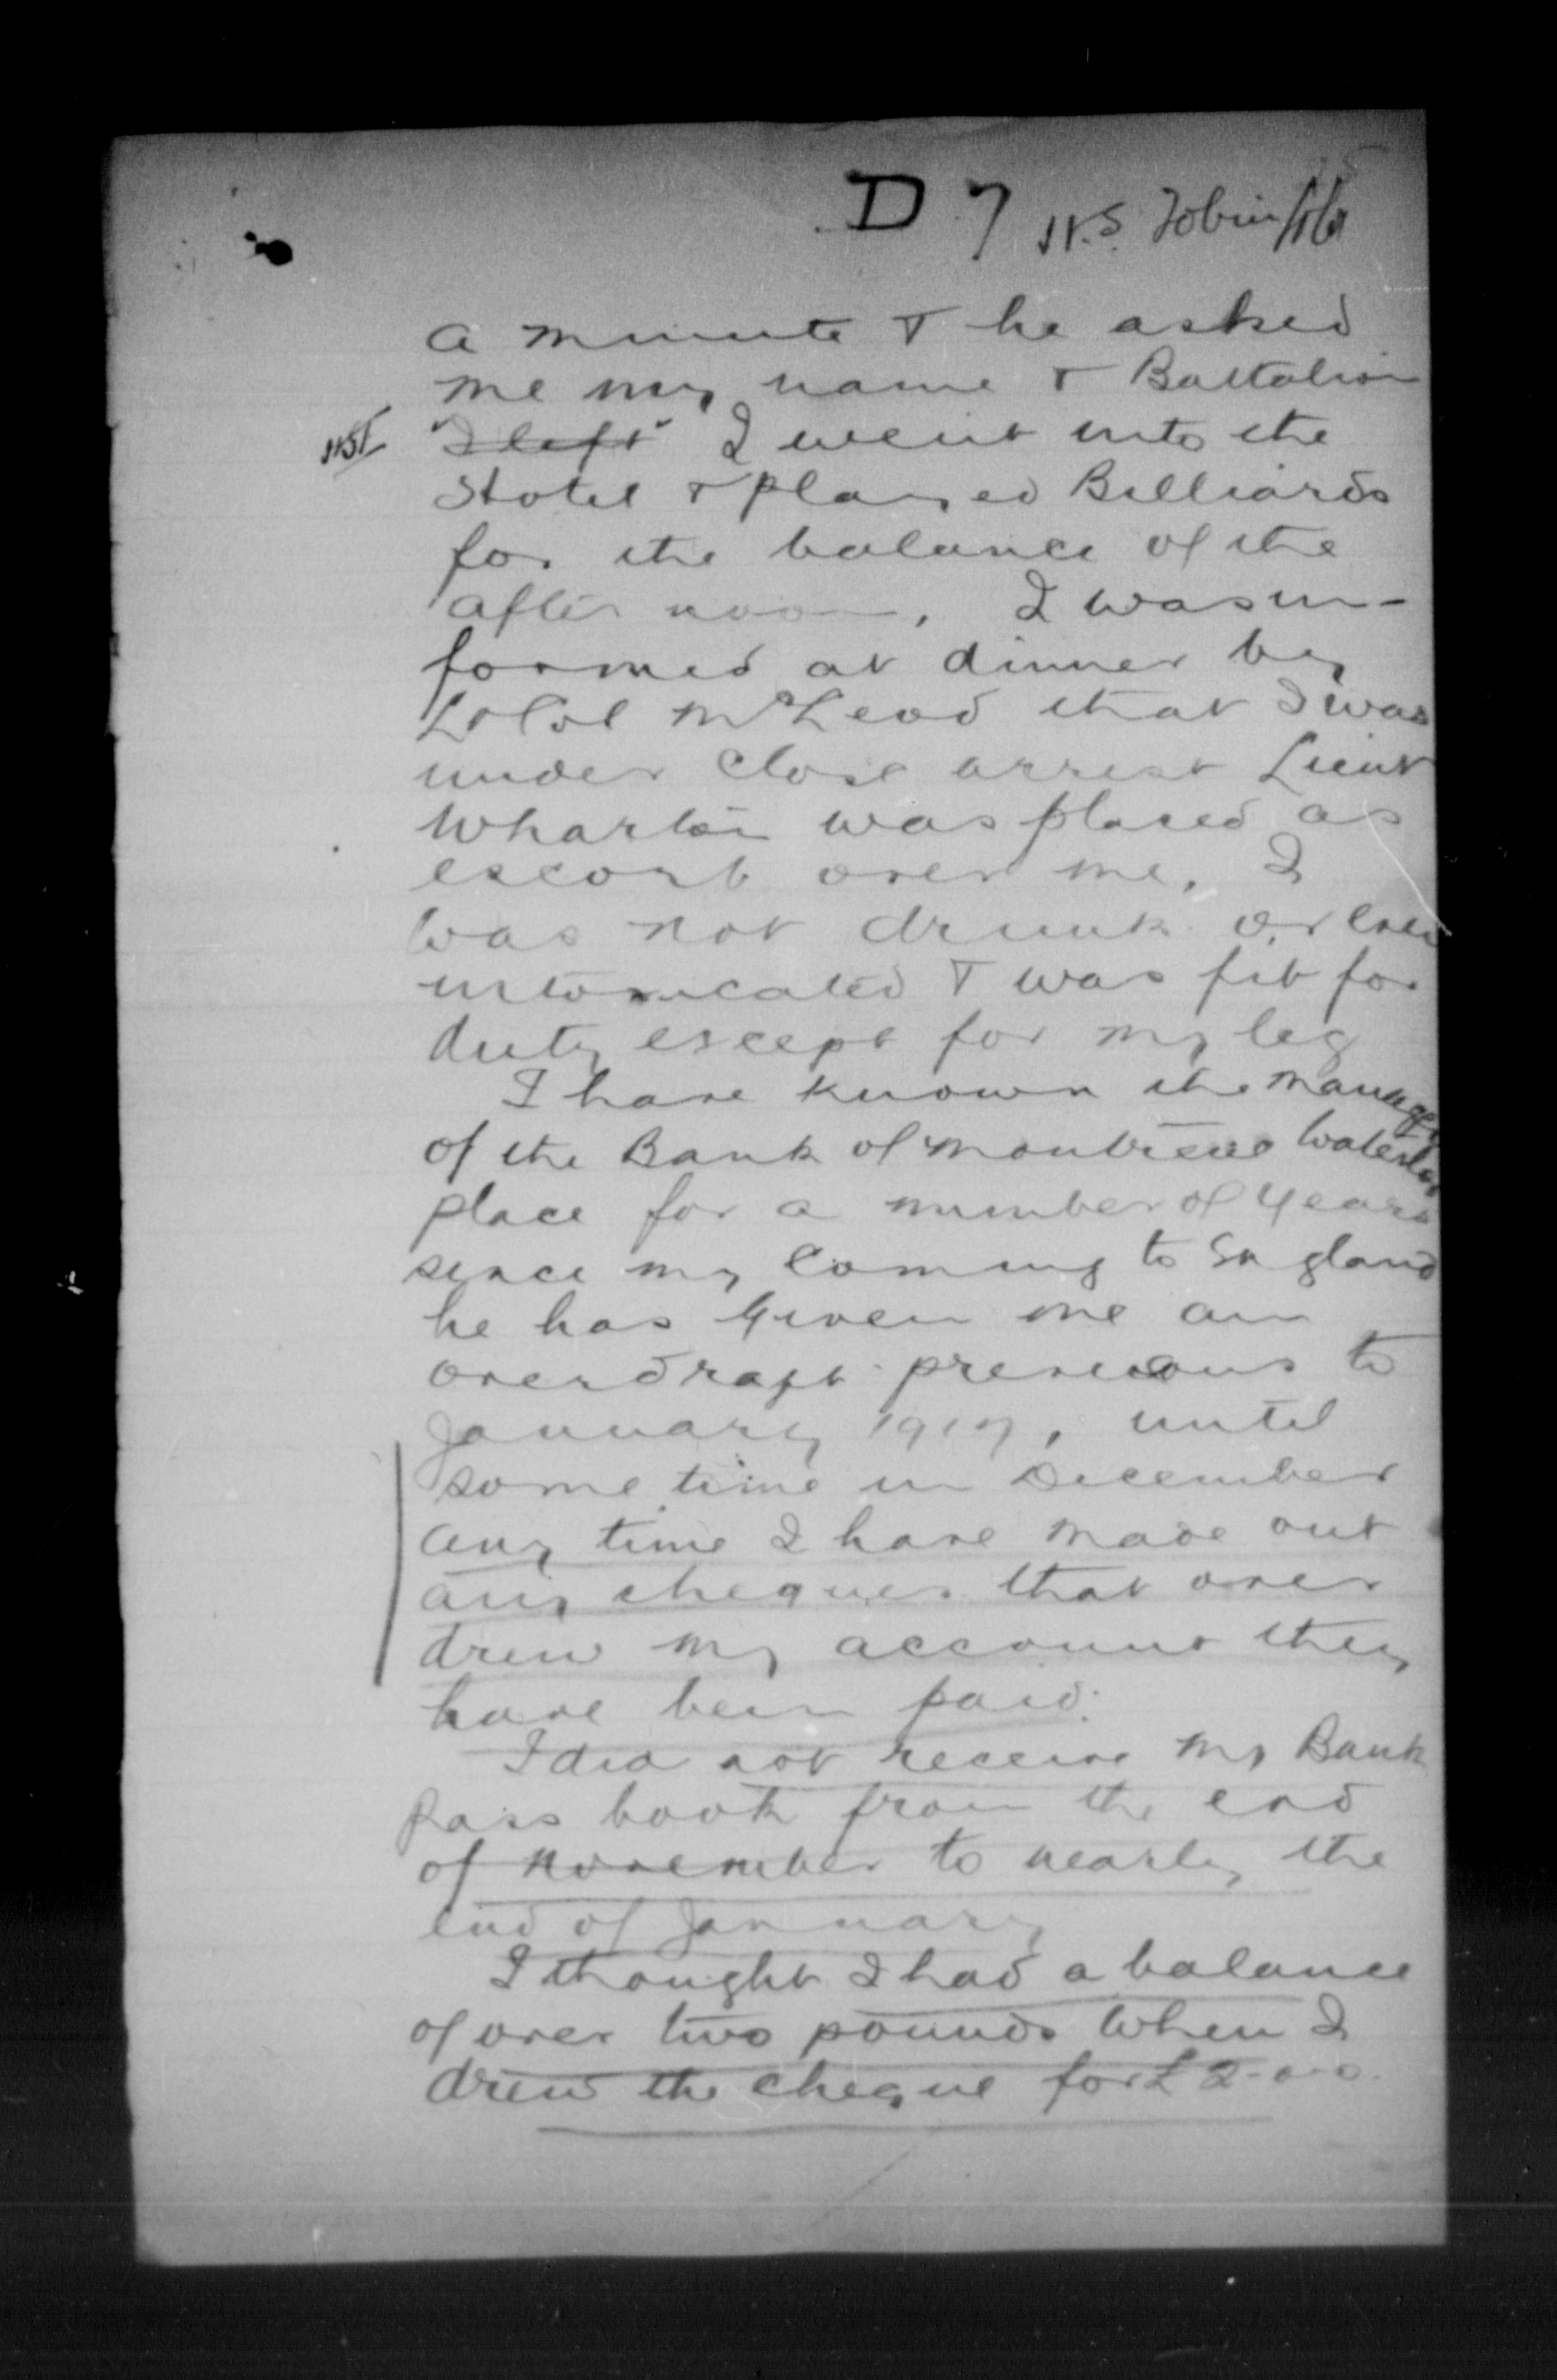 D 7 H.S. Tobin
a minute & he asked
me my name & Battalion
HST "I left" I went into the
Hotel & played Billiards
for the balance of the
after noon, I was in-
formed at dinner by
Lt Col McLeod that I was
under close arrest Lieut
Wharton was placed as
escort over me. I
was not drunk or even
intoxicated & was fit for
duty except for my leg
I have known the manager
of the Bank of Montreal Waterloo
place for a number of years
since my coming to England
he has given me an
overdraft previous to
January 1917, until
some time in December
any time I have made out
any cheques that over
drew my account they
have been paid.
I did not receive my Bank
pass book from the end
of November to nearly the
end of January
I thought I had a balance
of over two pounds when I
drew the cheque for £2-0-0.